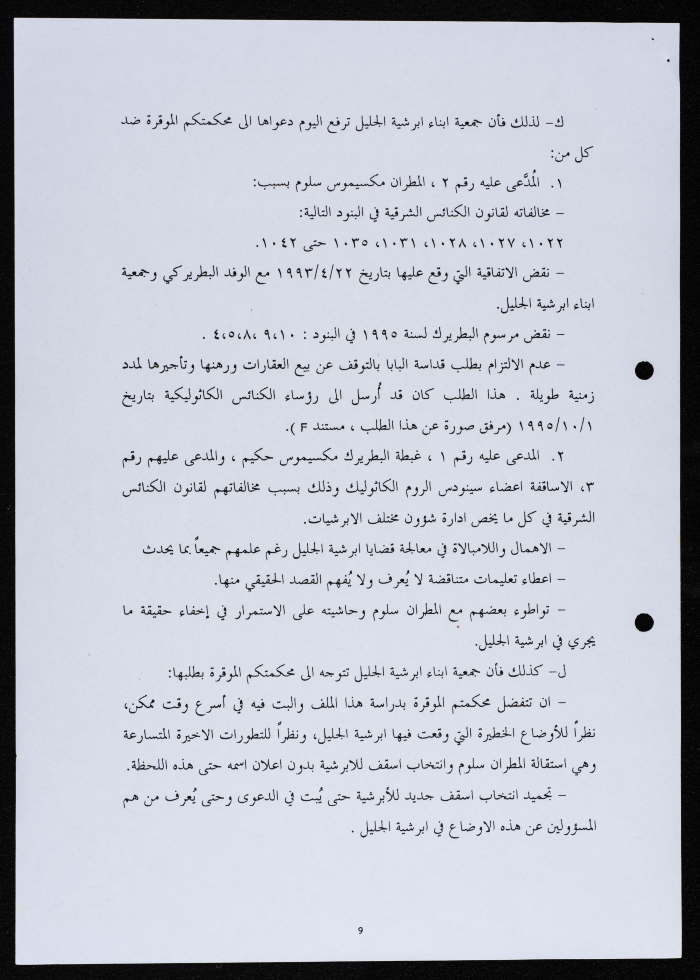 ك- لذلك فأن جمعية ابناء ابرشية الجليل ترفع اليوم دعواها الى محكمتكم الموقرة ضد
كل من:
١. المُدَّعى عليه رقم ٢ ، المطران مكسيموس سلوم بسبب:
– مخالفاته لقانون الكنائس الشرقية في البنود التالية:
١٠٢٢، ١٠٢٧، ١٠٢٨، ١٠٣١، ١٠٣٥ حتى ١٠٤٢.
– نقض الاتفاقية التي وقع عليها بتاريخ ١٩٩٣/٤/٢٢ مع الوفد البطريركي وجمعية
ابناء ابرشية الجليل.
– نقض مرسوم البطريرك لسنة ١٩٩٥ في البنود : ٩،١٠ ،٤،٥،٨ .
– عدم الالتزام بطلب قداسة البابا بالتوقف عن بيع العقارات ورهنها وتأجيرها لمدد
زمنية طويلة . هذا الطلب كان قد أُرسل الى رؤساء الكنائس الكاثوليكية بتاريخ
١٩٩٥/١٠/١ (مرفق صورة عن هذا الطلب ، مستند F ).
٢. المدعى عليه رقم ١ ، غبطة البطريرك مكسيموس حكيم ، والمدعى عليهم رقم
٣، الاساقفة اعضاء سينودس الروم الكاثوليك وذلك بسبب مخالفاتهم لقانون الكنائس
الشرقية في كل ما يخص ادارة شؤون مختلف الابرشيات.
– الاهمال واللامبالاة في معالجة قضايا ابرشية الجليل رغم علمهم جميعاً بما يحدث
– اعطاء تعليمات متناقضة لا يُعرف ولا يُفهم القصد الحقيقي منها.
– تواطوء بعضهم مع المطران سلوم وحاشيته على الاستمرار في إخفاء حقيقة ما
يجري في ابرشية الجليل.
ل- كذلك فأن جمعية ابناء ابرشية الجليل تتوجه الى محكمتكم الموقرة بطلبها:
– ان تتفضل محكمتم الموقرة بدراسة هذا الملف والبت فيه في أسرع وقت ممكن،
نظراً للأوضاع الخطيرة التي وقعت فيها ابرشية الجليل، ونظراً للتطورات الاخيرة المتسارعة
وهي استقالة المطران سلوم وانتخاب اسقف للابرشية بدون اعلان اسمه حتى هذه اللحظة.
– تجميد انتخاب اسقف جديد للأبرشية حتى يُبت في الدعوى وحتى يُعرف من هم
المسؤولين عن هذه الاوضاع في ابرشية الجليل .
9